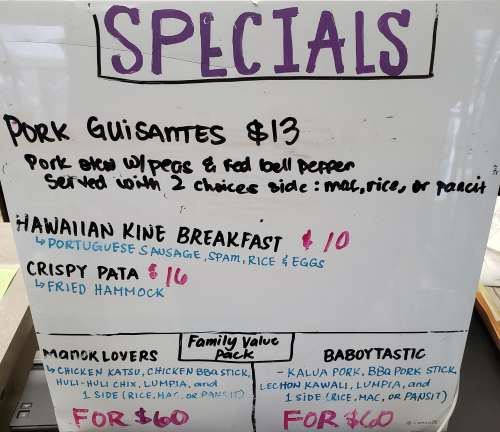 SPECIALS
PORK GUISANTES $13
Pork stew w/peas & red bell pepper
Served with 2 choices side: mac, rice, or pancit
HAWAIIAN KINE BREAKFAST $10
↳ PORTUGUESE SAUSAGE, SPAM, RICE & EGGS
CRISPY PATA $16
↳ FRIED HAMMOCK
Family Value
Pack
MANOK LOVERS
↳ CHICKEN KATSU, CHICKEN BBQ STICK,
HULI-HULI CHIX, LUMPIA, and
1 SIDE (RICE, MAC, OR PANSIT)
FOR $60
BABOYTASTIC
- KALUA PORK, BBQ PORK STICK,
LECHON KAWALI, LUMPIA, and
1 SIDE (RICE, MAC, OR PANSIT)
FOR $60